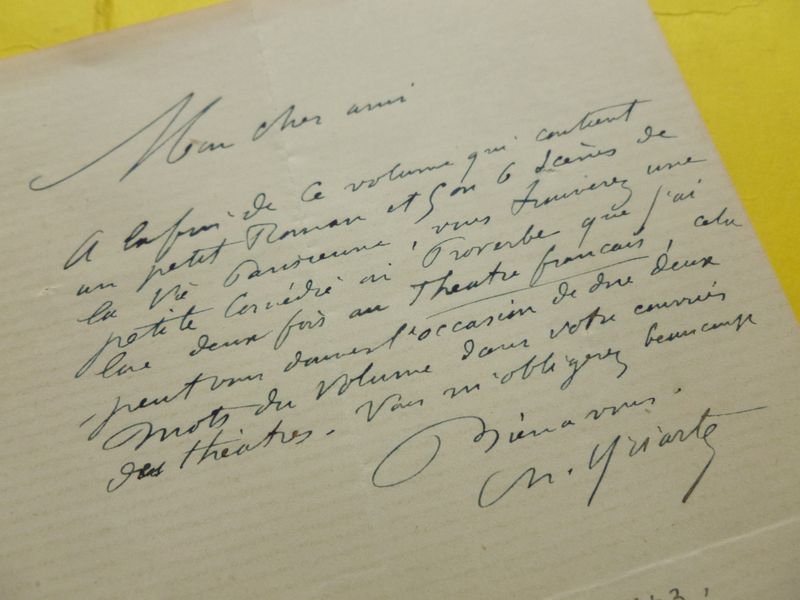 Mon cher ami
A la fin de ce volume qui contient
un petit Roman et 5 ou 6 Scènes de
la Vie Parisienne, vous trouverez une
petite Comédie ou Proverbe que j'ai
lue deux fois au Theatre français, cela
peut vous donner l'occasion de dire deux
mots du Volume dans votre courrier
des théatres. Vous m'obligerez beaucoup
Bien a vous.
Ch. Yriarte